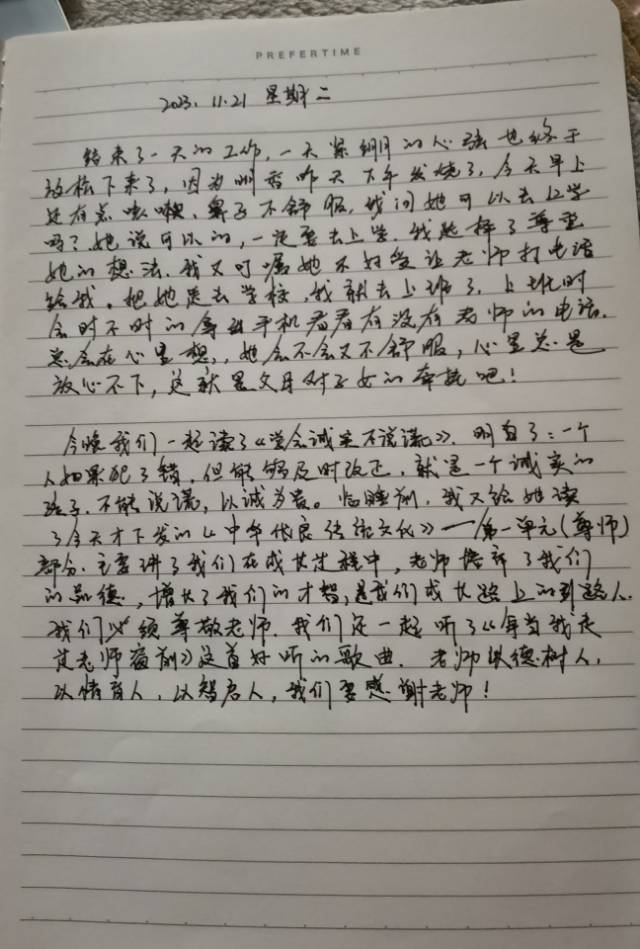 PREFERTIME
2023.11.21 星期二
结束了一天的工作,一天紧绷的心弦也终于
放松下来了,因为明香昨天下午发烧了,今天早上
还有点咳嗽、鼻子不舒服,我问她可以去上学
吗?她说可以的,一定要去上学.我选择了尊重
她的想法.我又叮嘱她不好受让老师打电话
给我。把她送去学校,我就去上班了,上班时
会时不时的拿出手机看看有没有老师的电话.
总会在心里想,她会不会又不舒服,心里总是
放心不下,这就是父母对子女的牵挂吧!
今晚我们一起读了《学会诚实不说谎》.明白了:一个
人如果犯了错,但能够及时改正,就是一个诚实的
孩子.不能说谎,以诚为贵。临睡前,我又给她读
了今天才下发的《中华优良传统文化》—第一单元(尊师)
部分.主要讲了我们在成长过程中,老师培养了我们
的品德,增长了我们的才智,是我们成长路上的引路人.
我们必须尊敬老师.我们还一起听了《每当我走
过老师窗前》这首好听的歌曲.老师以德树人,
以情育人,以智启人,我们要感谢老师!